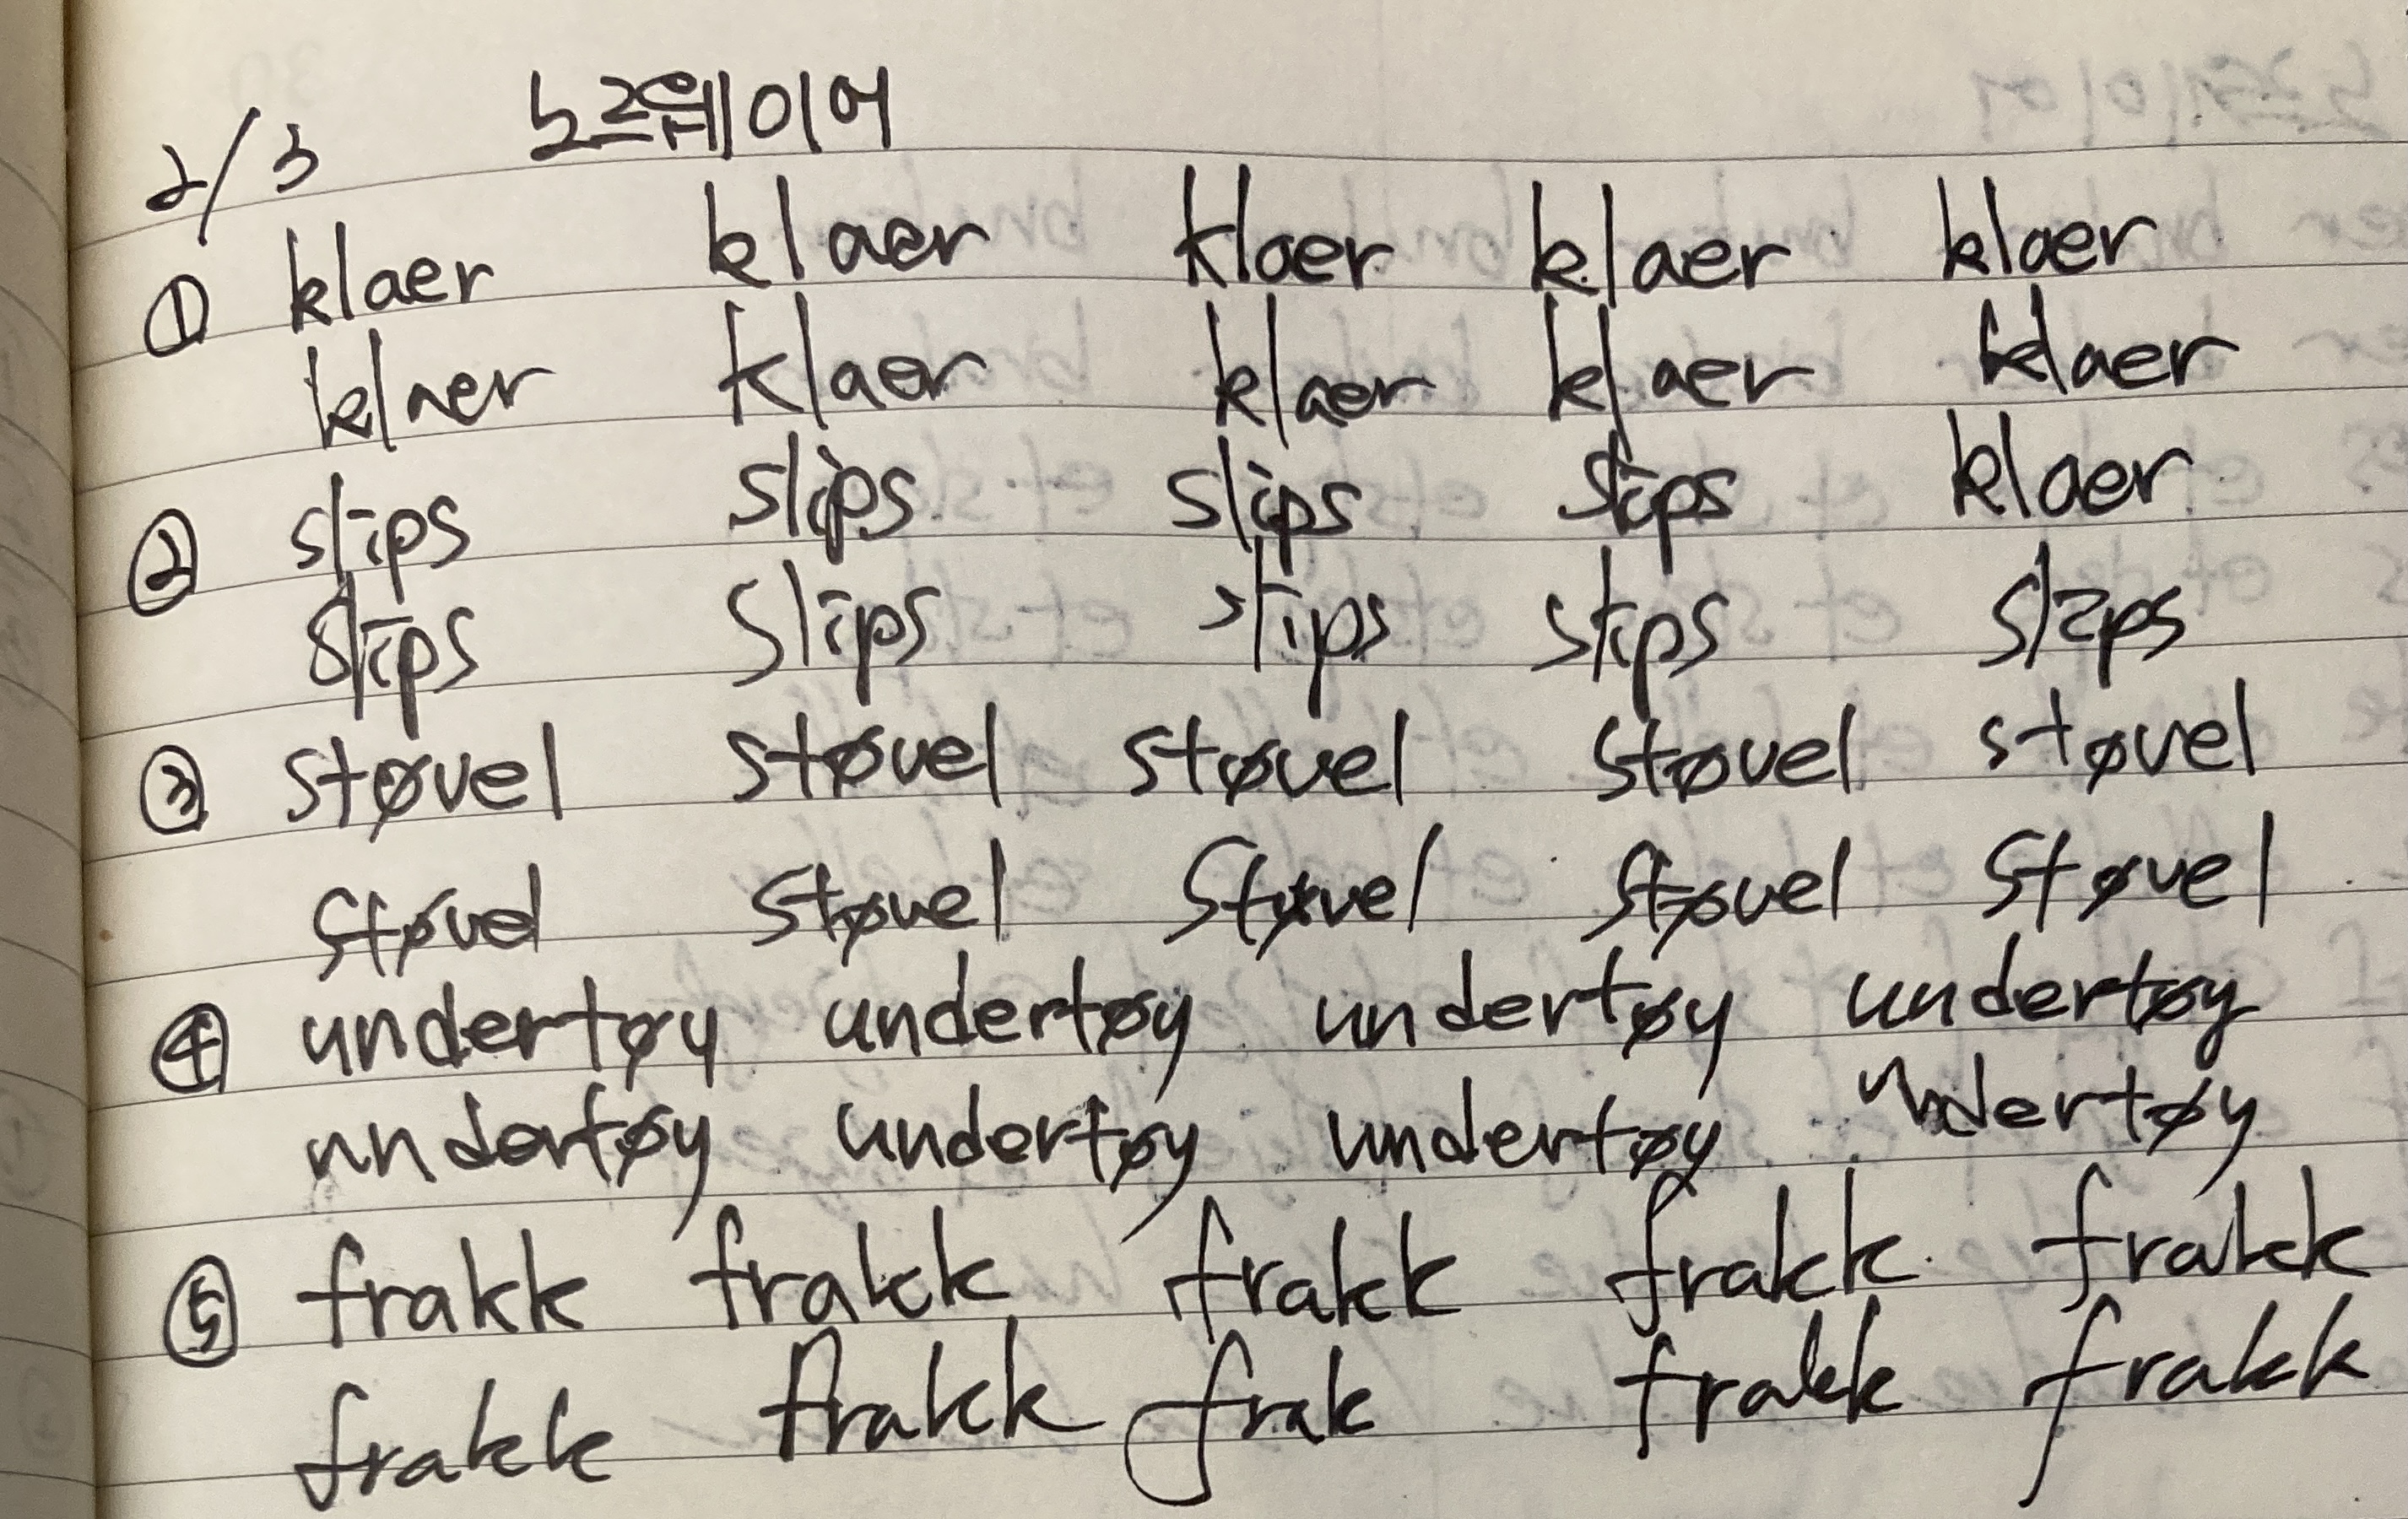 노르웨이어
2/3
① klaer klaer klaer klaer klaer
klaer klaer klaer klaer klaer
② slips slips slips slips klaer
slips slips slips slips slips
③ støvel støvel støvel støvel støvel
støvel støvel støvel støvel støvel
④ undertøy undertøy undertøy undertøy
undertøy undertøy undertøy undertøy
⑤ frakk frakk frakk frakk frakk
frakk frakk frak frakk frakk